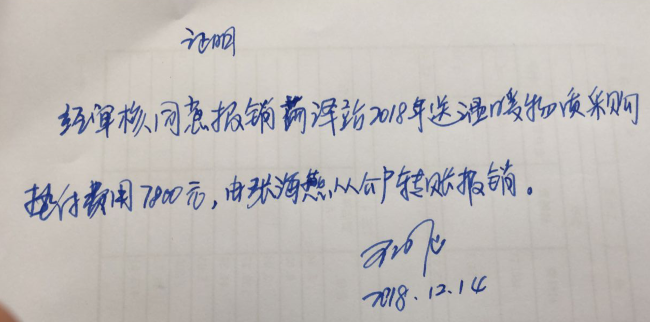 证明
经审核,同意报销菏泽站2018年送温暖物质采购
垫付费用7800元,由张海燕从公户转账报销。
2018.12.14